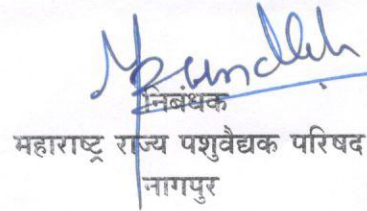 निबंधक
महाराष्ट्र राज्य पशुवैद्यक परिषद
नागपुर